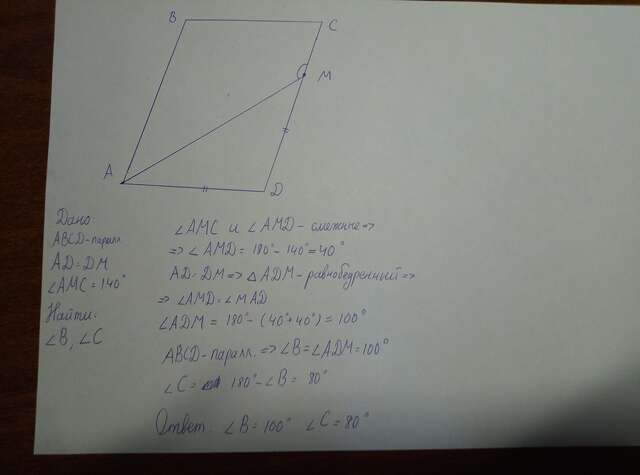 B
C
M
A
D
Дано:
ABCD-паралл.
AD=DM
∠AMC=140°
Найти:
∠B, ∠C
∠AMC и ∠AMD-смежные=>
=>∠AMD=180°-140°=40°
AD=DM=>△ADM-равнобедренный=>
=>∠AMD=∠MAD
∠ADM=180°-(40°+40°)=100°
ABCD-паралл.=>∠B=∠ADM=100°
∠C= 180°-∠B=80°
Ответ: ∠B=100° ∠C=80°